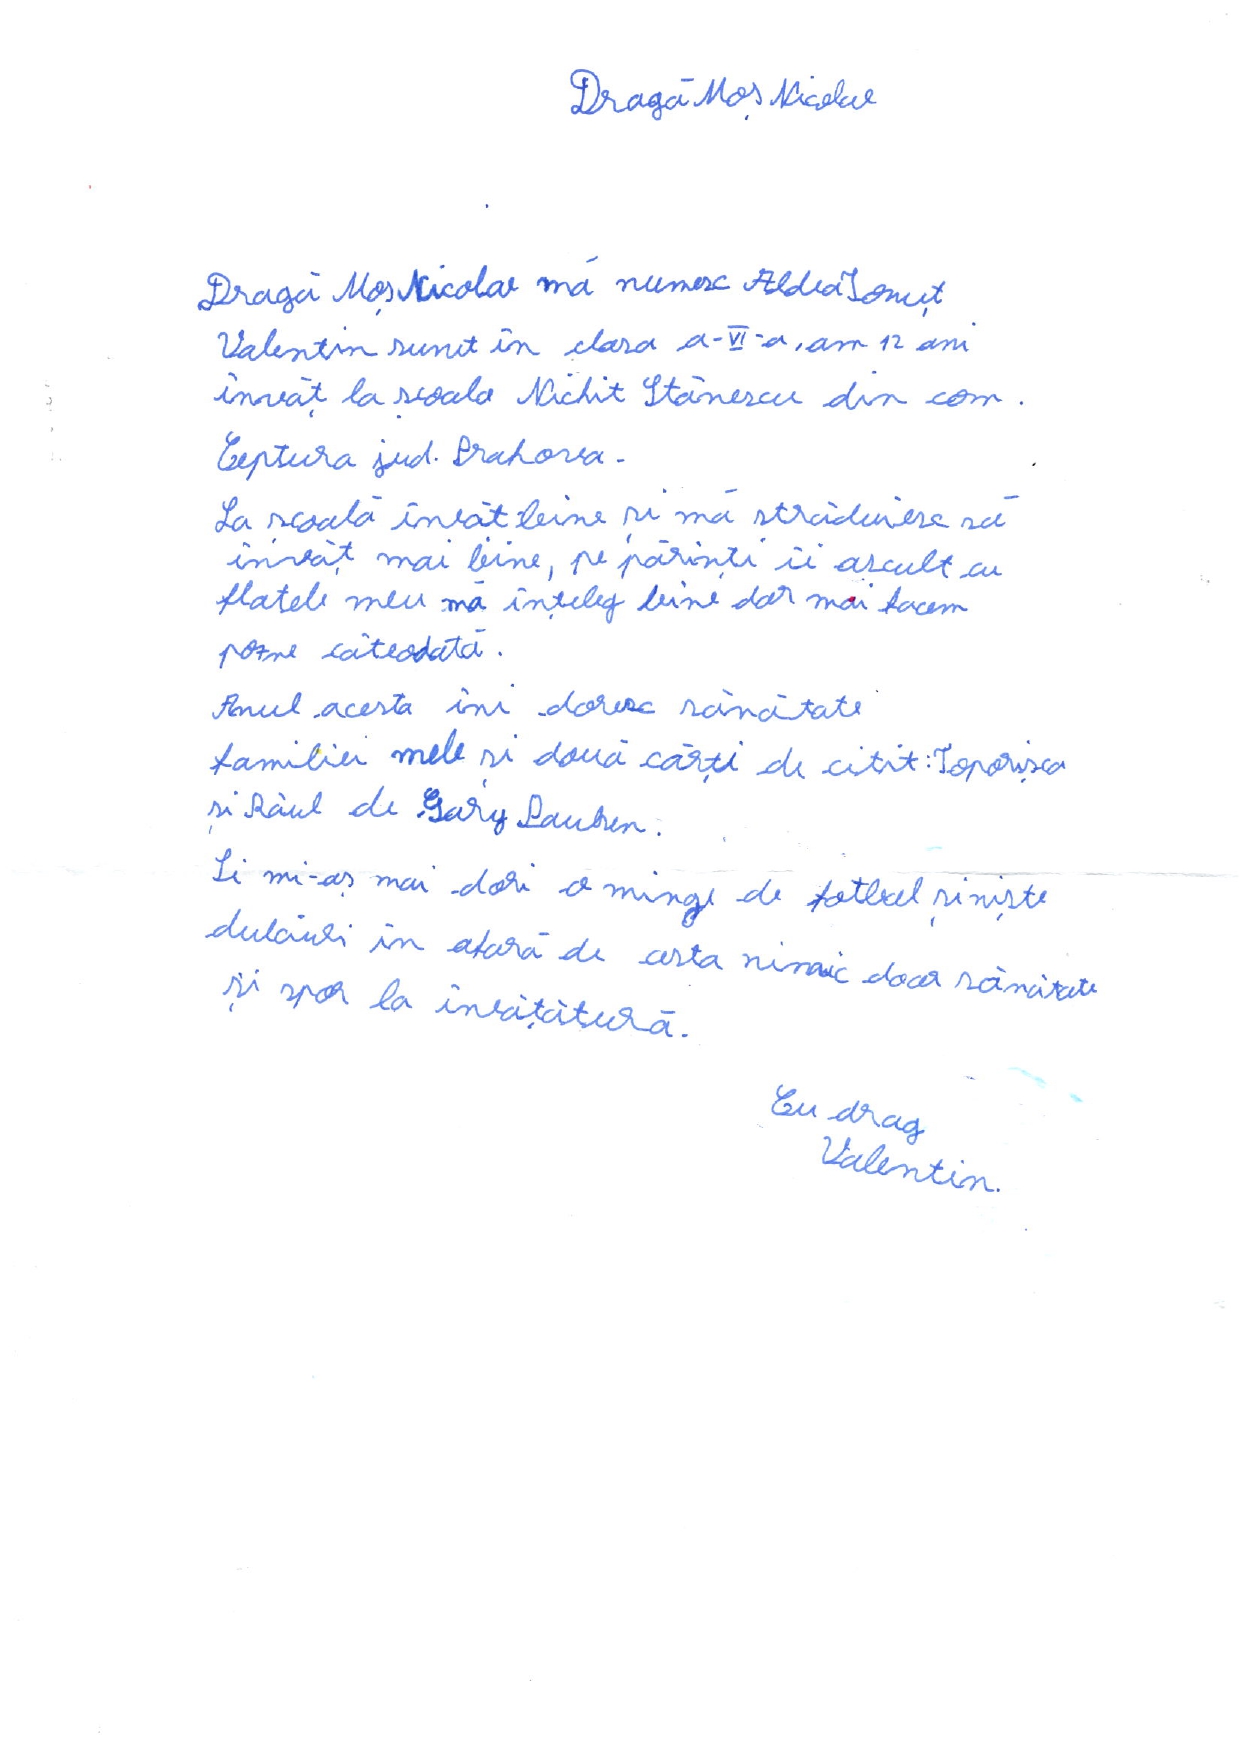 Dragă Moș Nicolae
Dragă Moș Nicolae mă numesc Aldea Ionuț
Valentin sunt în clasa a-VI-a, am 12 ani
învăț la școala Nichit Stănescu din com.
Ceptura jud. Prahova.
La școală învăt bine și mă străduiesc să
învăț mai bine, pe părinți îi ascult cu
flatele meu mă înțeleg bine dar mai facem
pozne câteodată.
Anul acesta îni doresc sănătate
familiei mele și două cărți de citit: Toporișca
și Râul de Gary Paulsen.
Și mi-aș mai dori o minge de fotbal și niște
dulciuri în afară de asta nimic doar sănătate
și spor la învățătură.
Cu drag
Valentin.